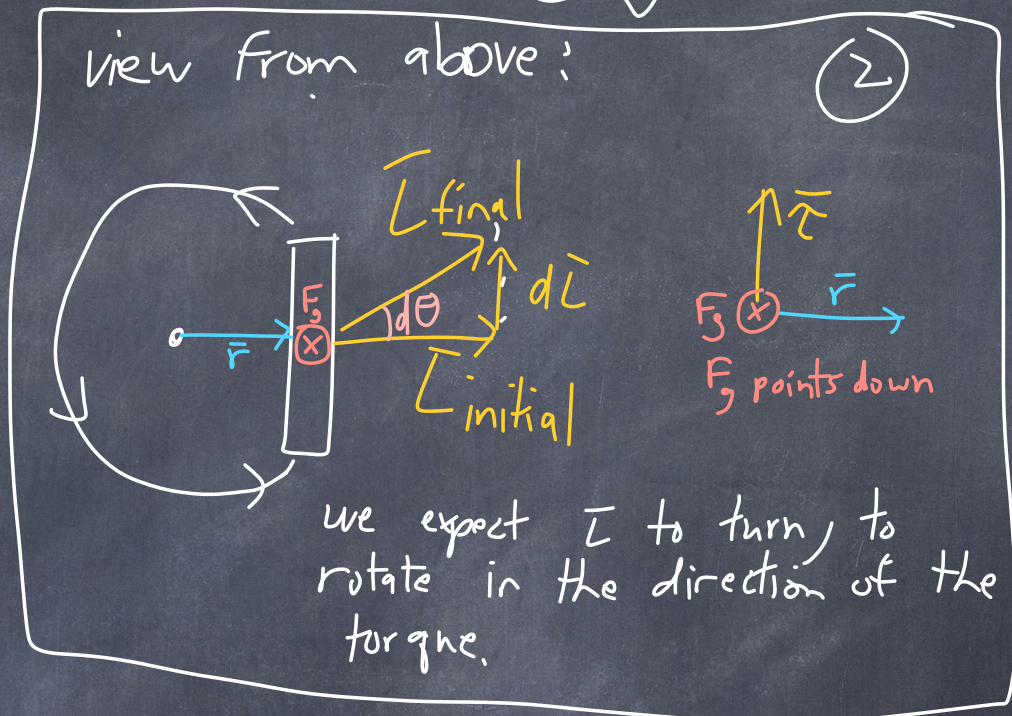 view from above:
2
L̄ final
τ̄
Fg
dθ
dL̄
r̄
Fg
r̄
L̄ initial
Fg points down
we expect L̄ to turn, to
rotate in the direction of the
torque.